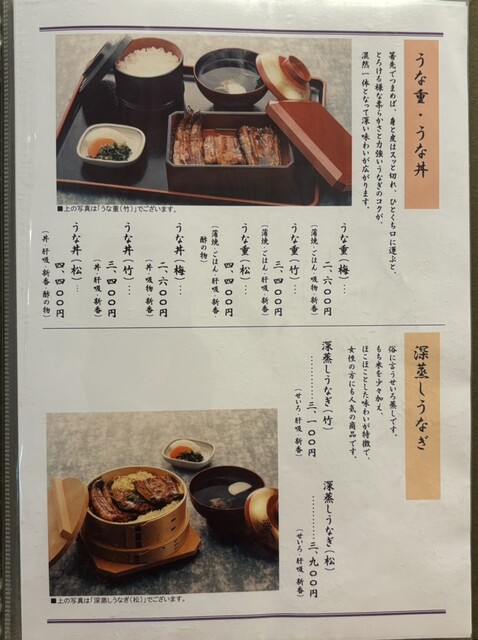 うな重・うな丼
箸先でつまめば、身と皮はスッと切れ、ひとくち口に運ぶと、
とろける様な柔らかさと力強いうなぎのコクが、
混然一体となって深い味わいが広がります。
■上の写真は「うな重(竹)」でございます。
うな重(梅)…
二、六〇〇円
(蒲焼・ごはん・吸物・新香)
うな重(竹)…
三、四〇〇円
(蒲焼・ごはん・肝吸・新香)
うな重(松)…
四、四〇〇円
(蒲焼・ごはん・肝吸・新香
酢の物)
うな丼(梅)…
二、六〇〇円
(丼・吸物・新香)
うな丼(竹)…
三、四〇〇円
(丼・肝吸・新香)
うな丼(松)…
四、四〇〇円
(丼・肝吸・新香・酢の物)
深蒸しうなぎ
俗に言うせいろ蒸しです。
もち米を少々加え、
ほこほことした味わいが特徴で、
女性の方にも人気の商品です。
深蒸しうなぎ(竹)
…………三、一〇〇円
(せいろ・肝吸・新香)
深蒸しうなぎ(松)
…………三、九〇〇円
(せいろ・肝吸・新香)
■上の写真は「深蒸しうなぎ(松)」でございます。